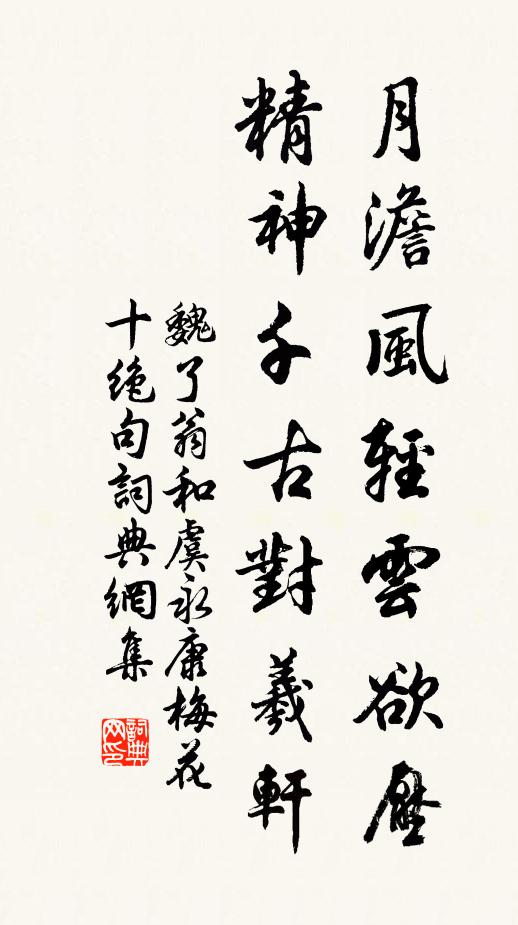 月澹風輕雲欲壓
精神千古對羲軒
魏了翁和虞永康梅花
十絶句詞典網集
詞典网印